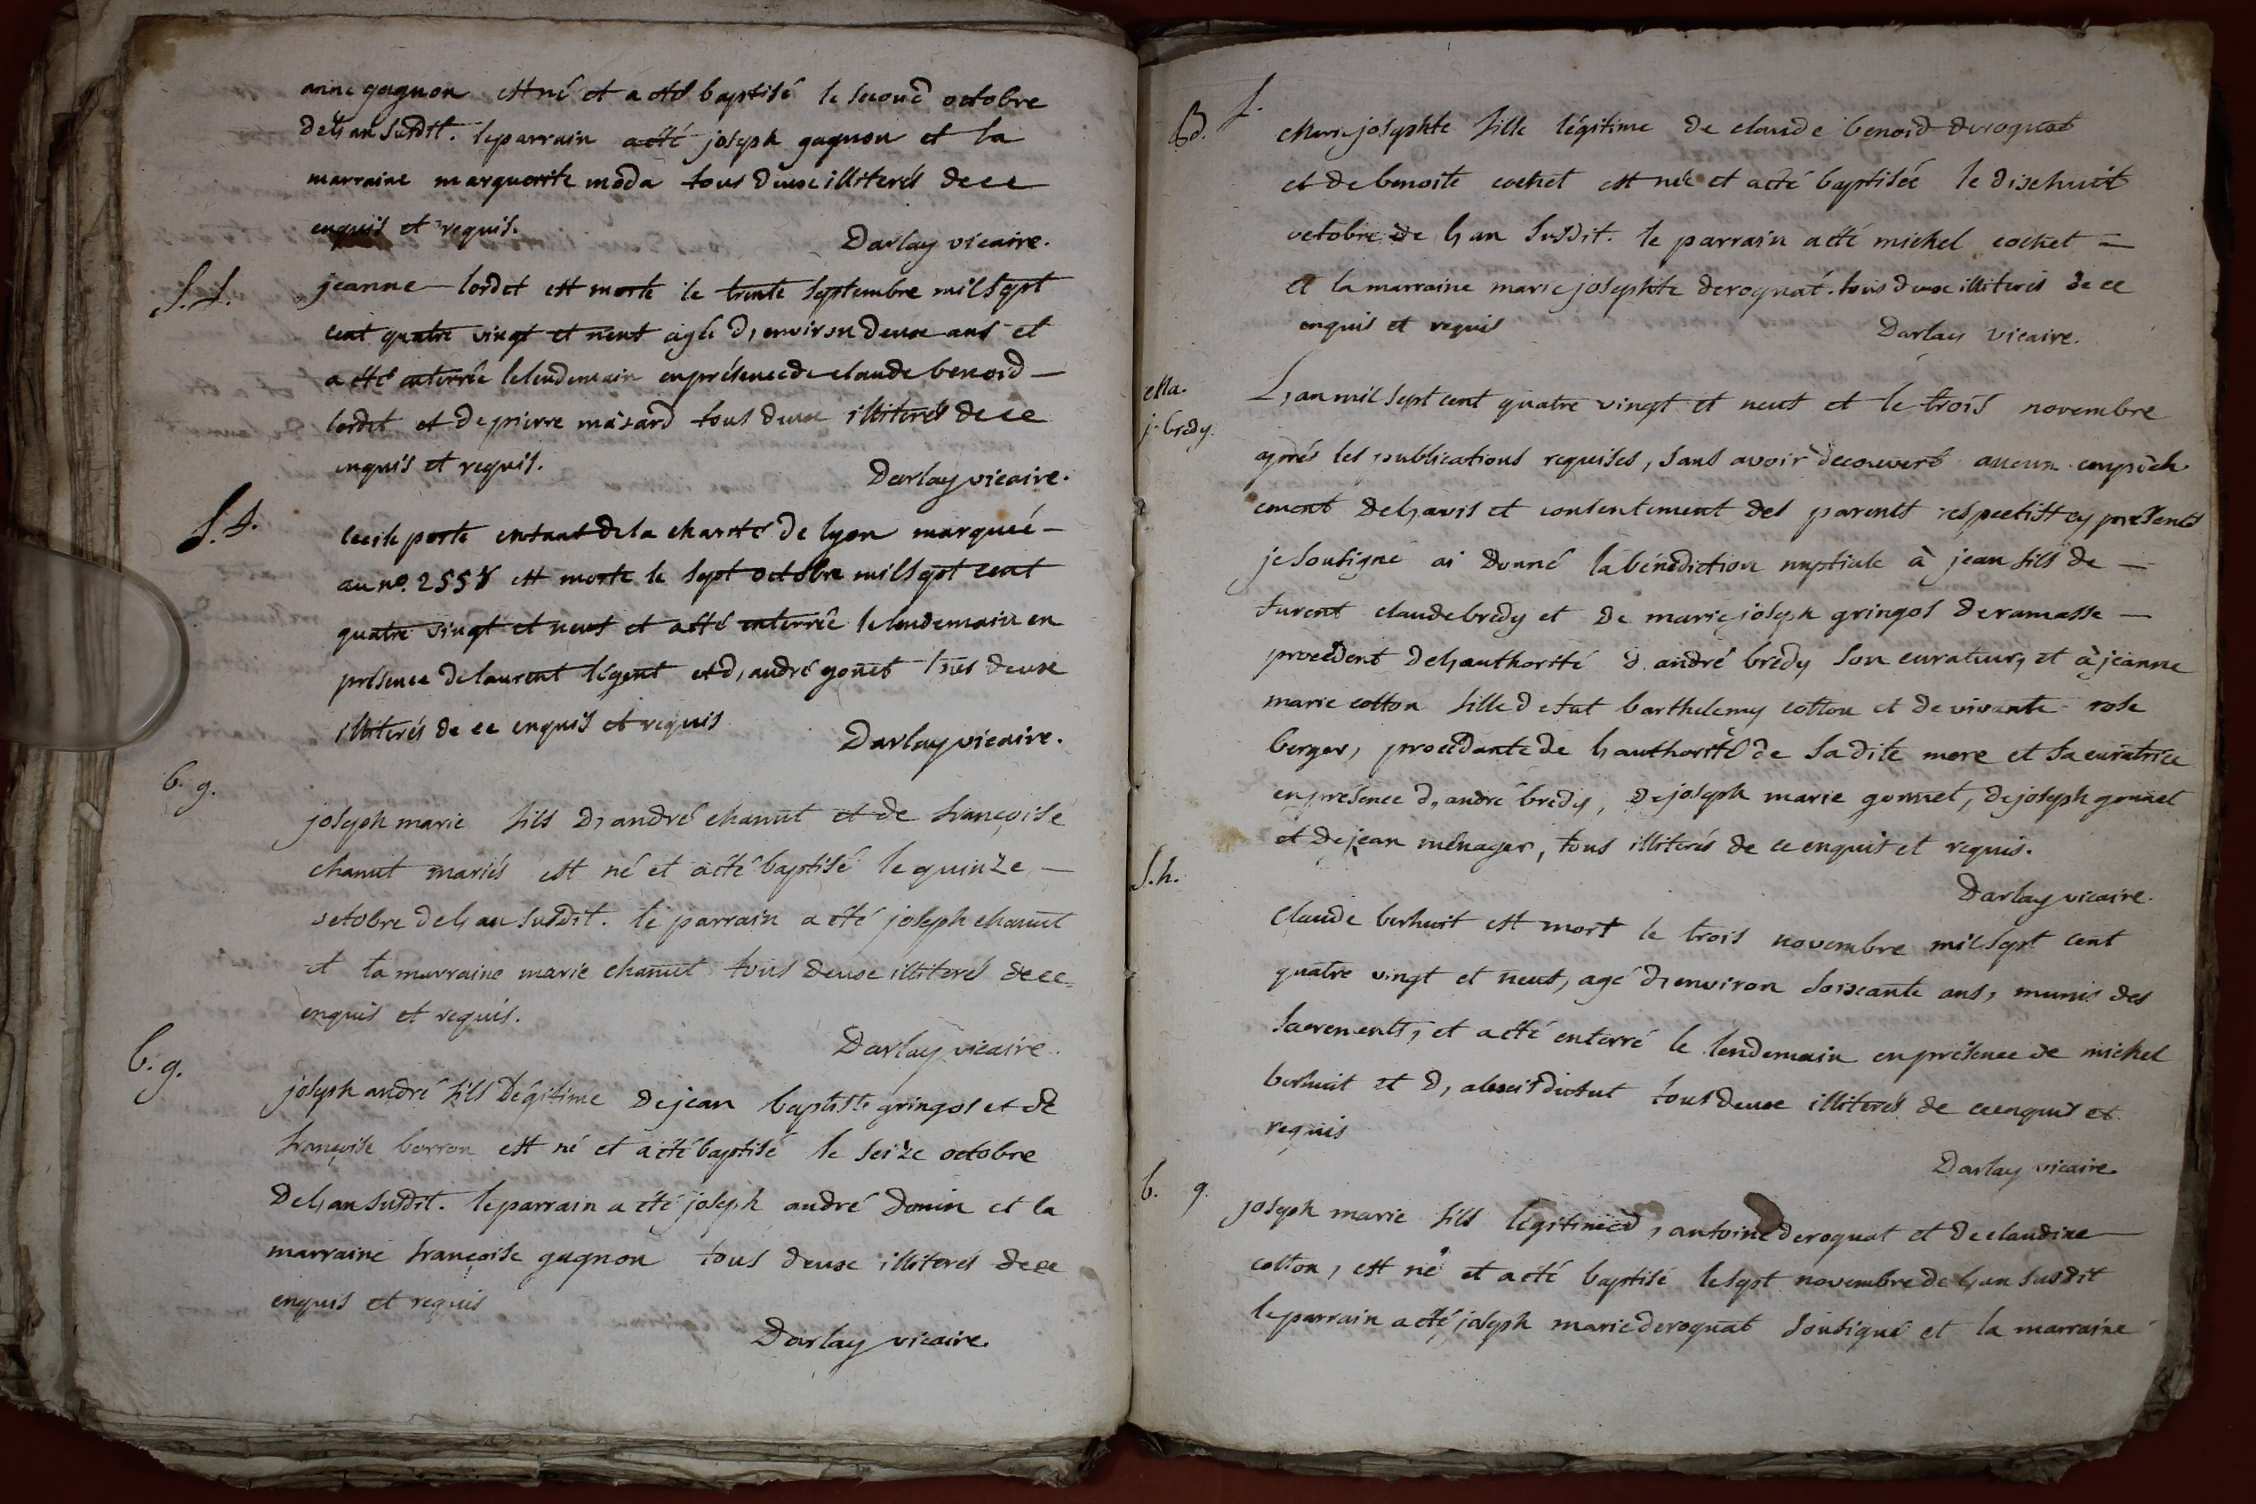 anne gagnon est né et a été baptisé le second octobre
de l'an susdit. le parrain a été joseph gagnon et la
marraine marguerite moda tous deux illiterés de ce
enquis et requis.
Darlay vicaire.
S. f.
jeanne lordet est morte le trente septembre mil sept
cent quatre vingt et neuf agée d'environ deux ans et
a été enterrée le lendemain en présence de claude benoid
lordet et de pierre masard tous deux illiterés de ce
enquis et requis.
Darlay vicaire.
S. f.
cecile porte enfant de la charité de lyon marqueé
au n°. 2558 est morte le sept octobre mil sept cent
quatre vingt et neuf et a été enterrée le lendemain en
présence de laurent légent et d'andré gonet tous deux
illiterés de ce enquis et requis
Darlay vicaire.
b. g.
joseph marie fils d'andré chanut et de françoise
chanut mariés est né et a été baptisé le quinze
octobre de l'an susdit. le parrain a été joseph chanut
et la marraine marie chanut tous deux illiterés de ce
enquis et requis.
Darlay vicaire.
b. g.
joseph andré fils légitime de jean baptiste gringos et de
françoise borron est né et a été baptisé le seize octobre
de l'an susdit. le parrain a été joseph andré donin et la
marraine françoise gagnon tous deux illiterés de ce
enquis et requis
Darlay vicaire.
f.
Marie josephte fille légitime de claude benoid deroquat
et de benoite cochet est née et a été baptisée le dixhuit
octobre de l'an susdit. le parrain a été michel cochet
et la marraine marie josephte deroquat. tous deux illiterés de ce
enquis et requis
Darlay vicaire.
Ma.
j. bredy.
L'an mil sept cent quatre vingt et neuf et le trois novembre
après les publications requises, sans avoir decouvert aucun empêch
ement de l'avis et consentement des parents respectifs cy présents
je soussigné ai donné la bénédiction nuptiale à jean fils de
furent claude bredy et de marie joseph gringos de ramasse
procédent de l'authorité d'andré bredy son curateur, et à jeanne
marie cotton fille de fut barthelemy cotton et de vivante rose
berger, procédante de l'authorité de sa dite mere et sa curatrice
en présence d'andré bredy, de joseph marie gonnet, de joseph gonnet
et de jean ménager, tous illiterés de ce enquis et requis.
Darlay vicaire.
S. h.
Claude berhuit est mort le trois novembre mil sept cent
quatre vingt et neuf, agé d'environ soixante ans, munis des
sacrements, et a été enterré le lendemain en présence de michel
berhuit et d'alexis dictut tous deux illiterés de ce enquis et
requis
Darlay vicaire.
b. g.
joseph marie fils légitime d'antoine deroquat et de claudine
cotton, est né et a été baptisé le sept novembre de l'an susdit
le parrain a été joseph marie deroquat soussigné et la marraine